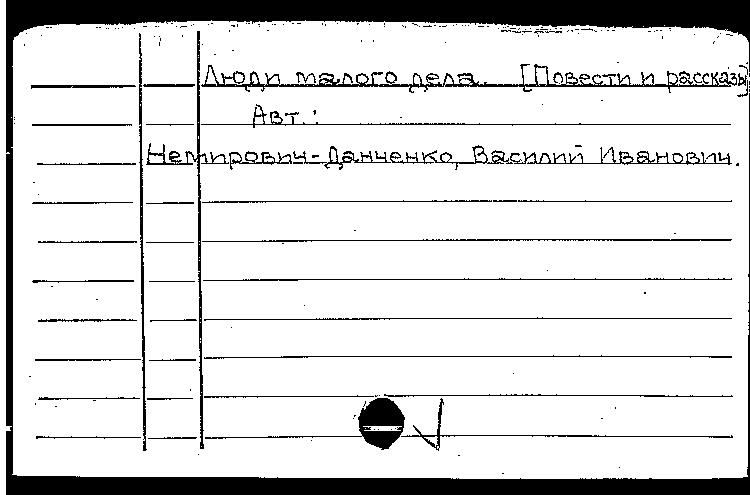 Люди малого дела. [Повести и рассказы]
Авт.:
Немирович-Данченко, Василий Иванович.